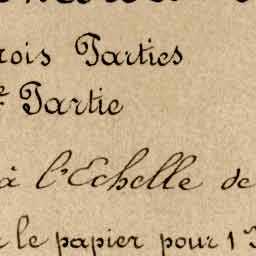 rois Parties
e Partie
à l'Echelle de
le papier pour 1